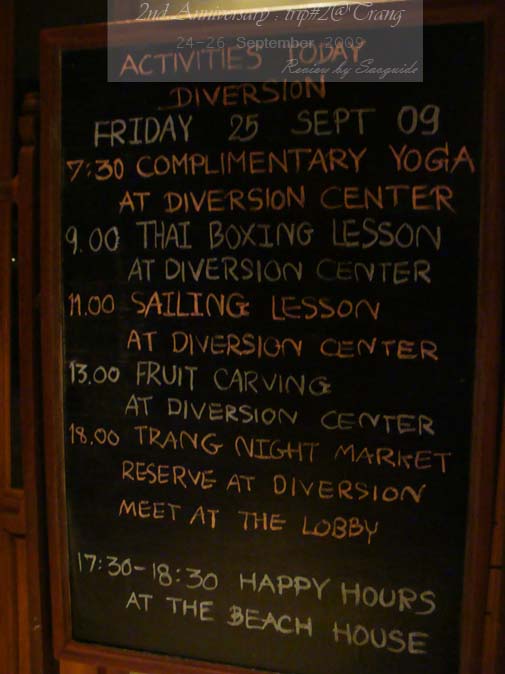 2nd Anniversary : trip#2@Trang
24-26 September 2009
Review by Saoguide
ACTIVITIES TODAY
DIVERSION
FRIDAY 25 SEPT 09
7:30 COMPLIMENTARY YOGA
AT DIVERSION CENTER
9.00 THAI BOXING LESSON
AT DIVERSION CENTER
11.00 SAILING LESSON
AT DIVERSION CENTER
13.00 FRUIT CARVING
AT DIVERSION CENTER
18.00 TRANG NIGHT MARKET
RESERVE AT DIVERSION
MEET AT THE LOBBY
17:30-18:30 HAPPY HOURS
AT THE BEACH HOUSE